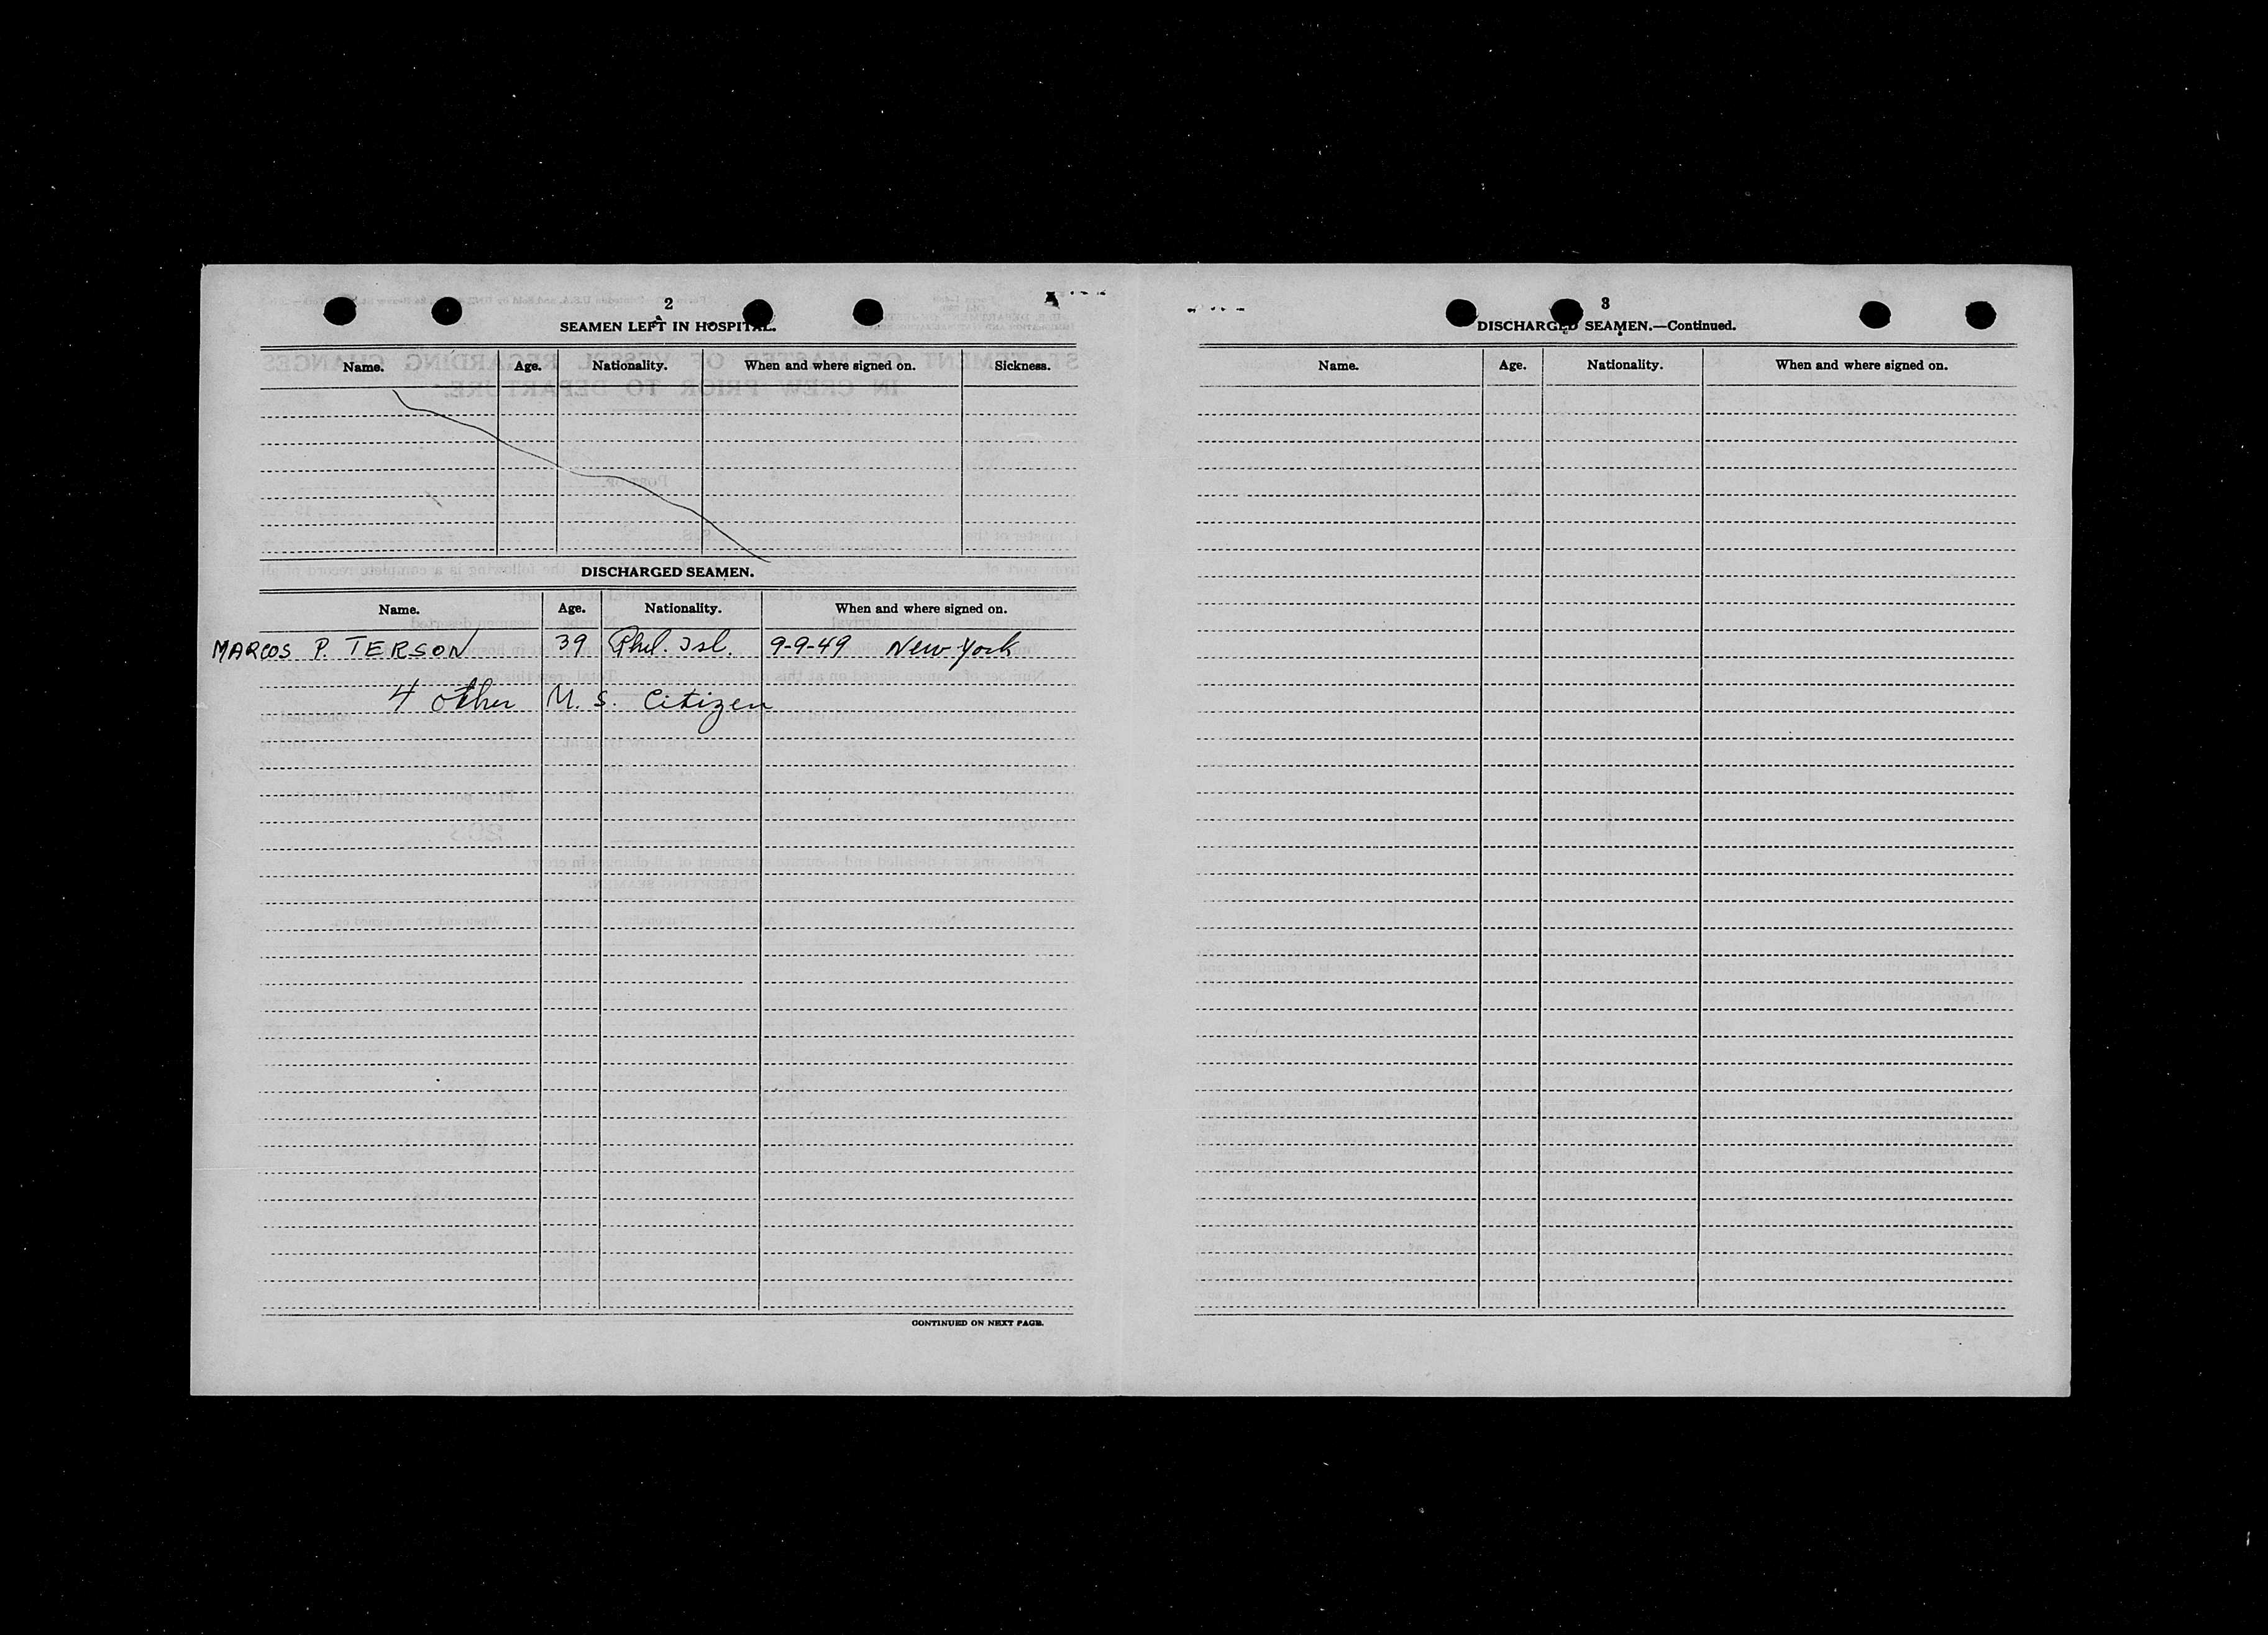 2
SEAMEN LEFT IN HOSPITAL.
Name. Age. Nationality. When and where signed on. Sickness.
DISCHARGED SEAMEN.
Name. Age. Nationality. When and where signed on.
MARCOS P. TERSON 39 Phil. Isl. 9-9-49 New York
4 other U.S. Citizen
CONTINUED ON NEXT PAGE.
3
DISCHARGED SEAMEN.—Continued.
Name. Age. Nationality. When and where signed on.